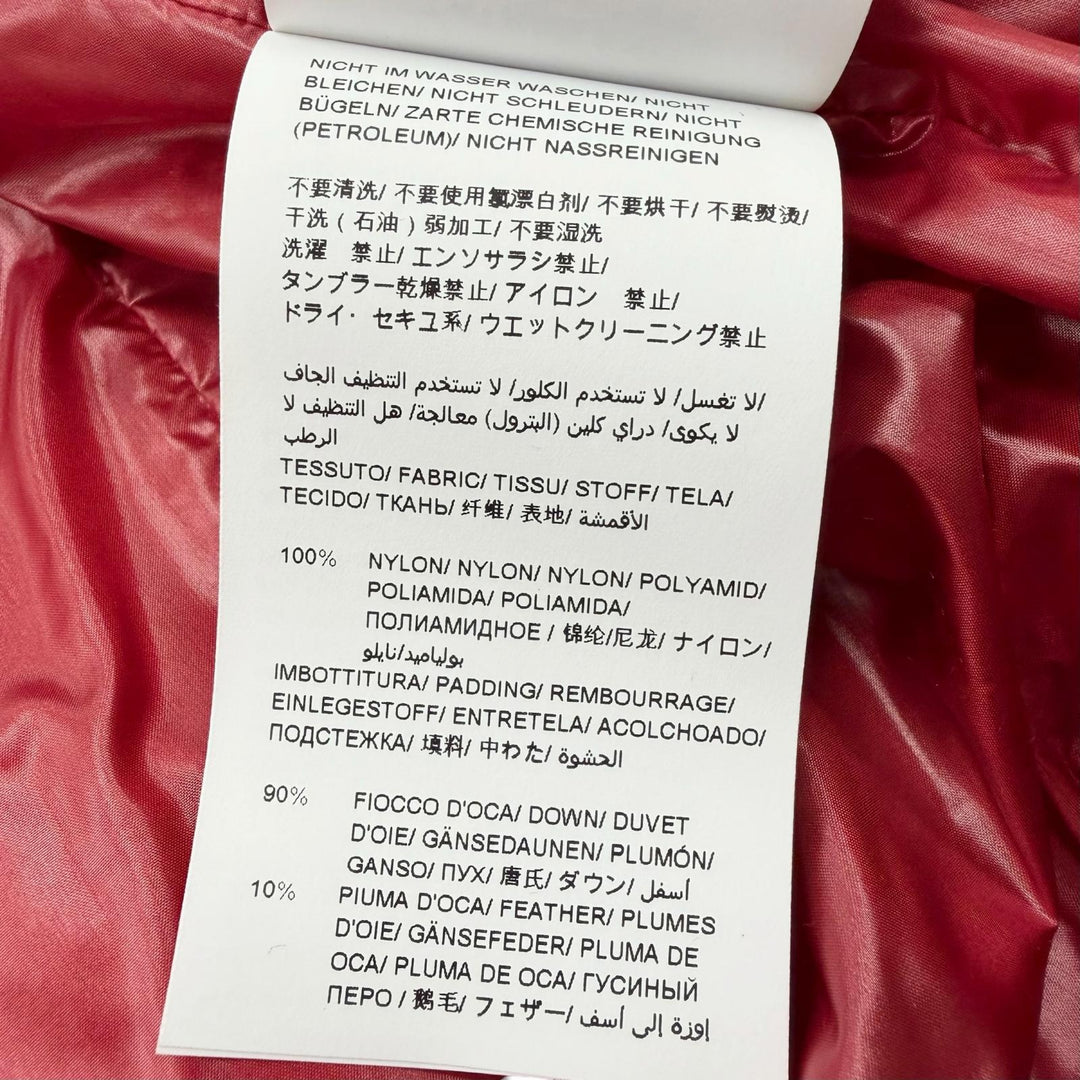 NICHT IM WASSER WASCHEN/ NICHT
BLEICHEN/ NICHT SCHLEUDERN/ NICHT
BÜGELN/ ZARTE CHEMISCHE REINIGUNG
(PETROLEUM)/ NICHT NASSREINIGEN
不要清洗/ 不要使用氯漂白剂/ 不要烘干/ 不要熨烫/
干洗（石油）弱加工/ 不要湿洗
洗濯　禁止/ エンソサラシ禁止/
タンブラー乾燥禁止/ アイロン　禁止/
ドライ・セキユ系/ ウエットクリーニング禁止
لا تغسل/ لا تستخدم الكلور/ لا تستخدم التنظيف الجاف/
لا يكوى/ دراي كلين (البترول) معالجة/ هل التنظيف لا
الرطب
TESSUTO/ FABRIC/ TISSU/ STOFF/ TELA/
TECIDO/ ТКАНЬ/ 纤维/ 表地/ الأقمشة
100% NYLON/ NYLON/ NYLON/ POLYAMID/
POLIAMIDA/ POLIAMIDA/
ПОЛИАМИДНОЕ / 锦纶/尼龙/ ナイロン/
بولياميد/نايلو
IMBOTTITURA/ PADDING/ REMBOURRAGE/
EINLEGESTOFF/ ENTRETELA/ ACOLCHOADO/
ПОДСТЕЖКА/ 填料/ 中わた/ الحشوة
90% FIOCCO D'OCA/ DOWN/ DUVET
D'OIE/ GÄNSEDAUNEN/ PLUMÓN/
GANSO/ ПУХ/ 唐氏/ ダウン/ أسفل
10% PIUMA D'OCA/ FEATHER/ PLUMES
D'OIE/ GÄNSEFEDER/ PLUMA DE
OCA/ PLUMA DE OCA/ ГУСИНЫЙ
ПЕРО / 鹅毛/ フェザー/ إوزة إلى أسف